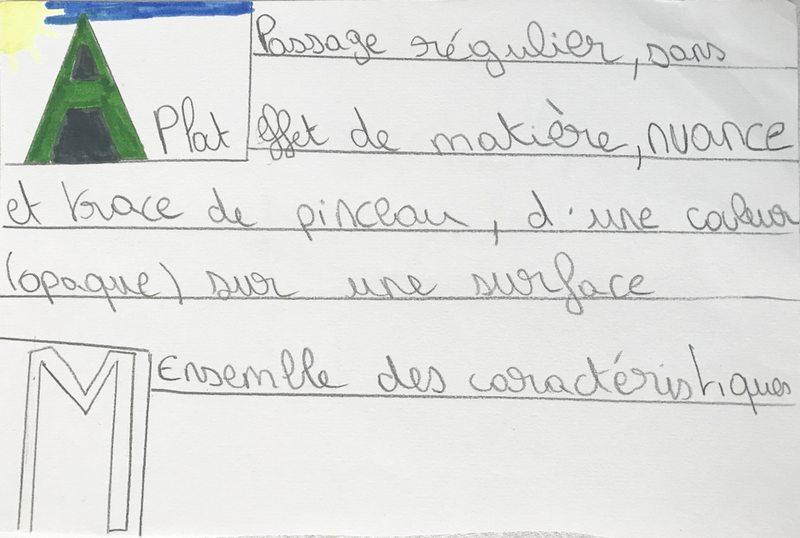 APlat Passage régulier, sans
effet de matière, nuance
et trace de pinceau, d'une couleur
(opaque) sur une surface
M Ensemble des caractéristiques